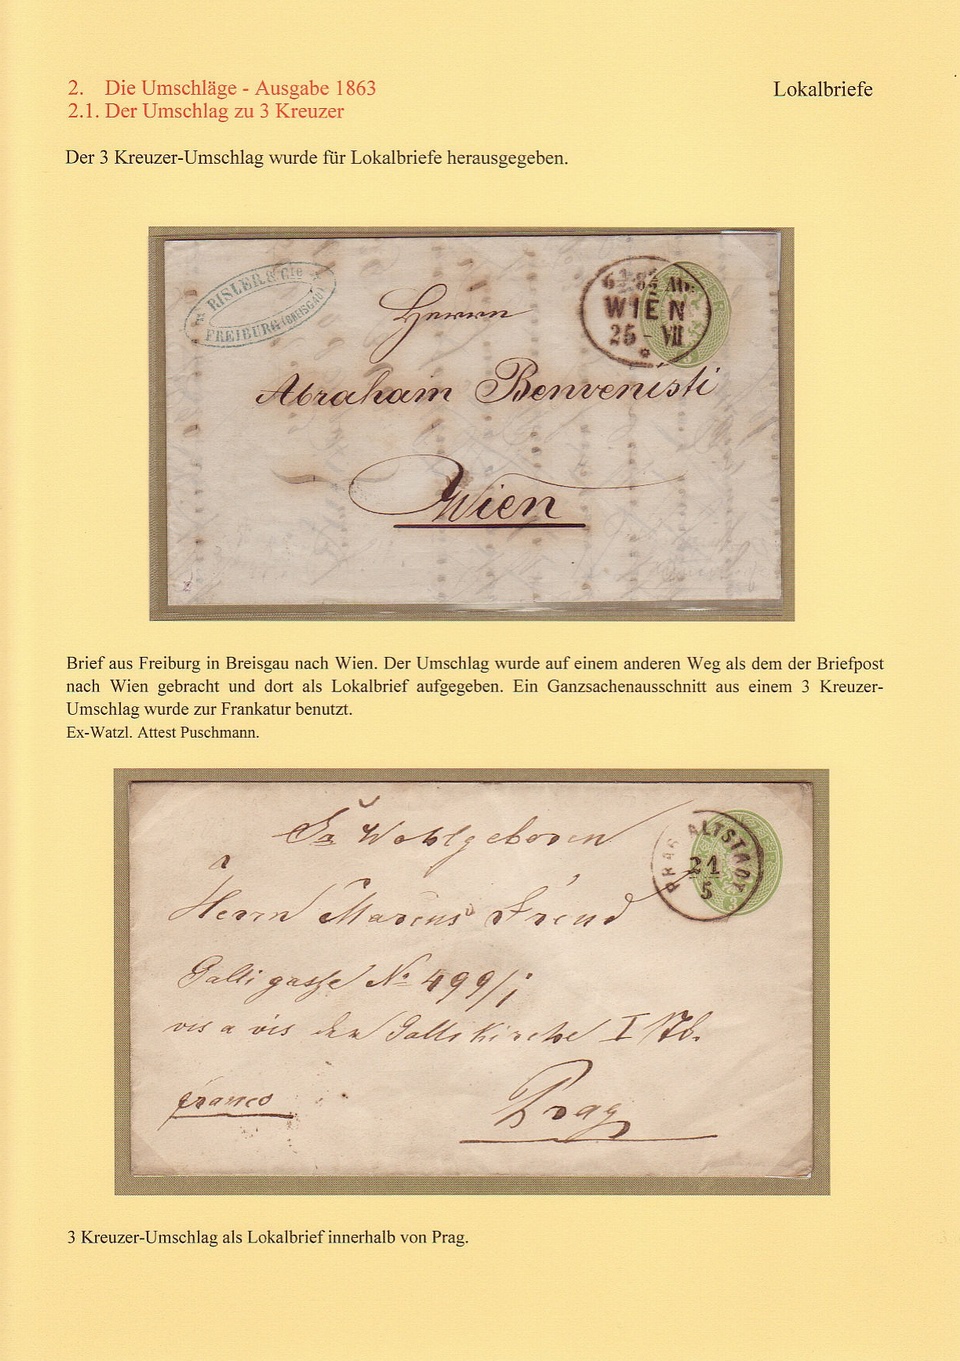 2. Die Umschläge - Ausgabe 1863
Lokalbriefe
2.1. Der Umschlag zu 3 Kreuzer
Der 3 Kreuzer-Umschlag wurde für Lokalbriefe herausgegeben.
RISLER & Cie
FREIBURG (BREISGAU)
WIEN
25 - VII
Herrn
Abraham Benvenisti
Wien
Brief aus Freiburg in Breisgau nach Wien. Der Umschlag wurde auf einem anderen Weg als dem der Briefpost
nach Wien gebracht und dort als Lokalbrief aufgegeben. Ein Ganzsachenausschnitt aus einem 3 Kreuzer-
Umschlag wurde zur Frankatur benutzt.
Ex-Watzl. Attest Puschmann.
Sr Wohlgeboren
PRAG ALTSTADT
21
5
3
Herrn Marcus Freud
Galli gasse No 499/I
vis a vis der Gallikirche I
franco
Prag
3 Kreuzer-Umschlag als Lokalbrief innerhalb von Prag.